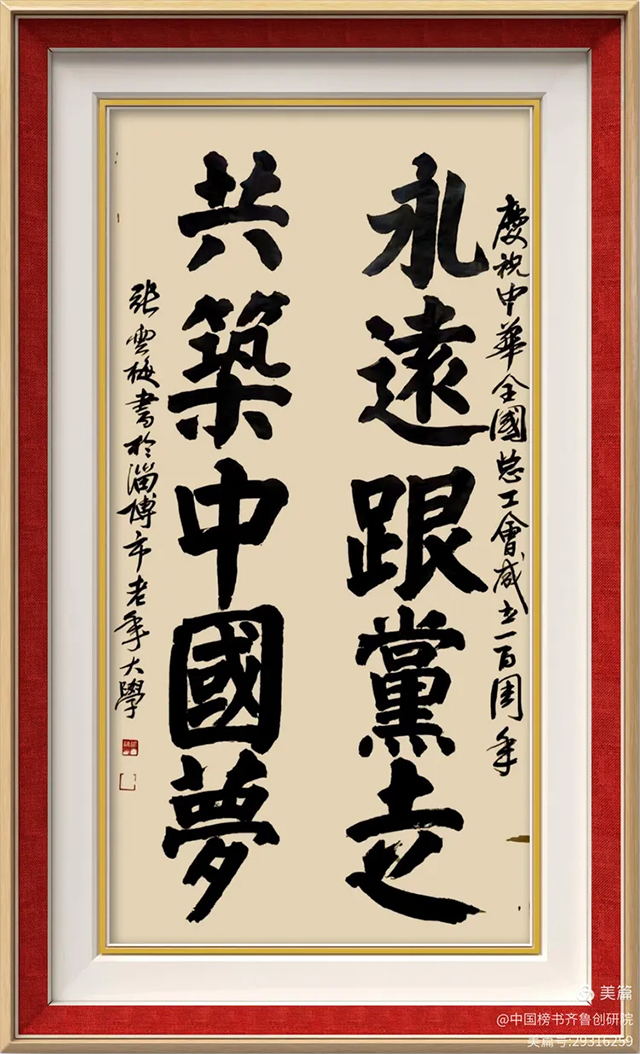 慶祝中華全國总工會成立一百周年
永遠跟黨走
共築中國夢
張雲梅書於淄博市老年大學
美篇
@中国榜书齐鲁创研院
美篇号:29316259